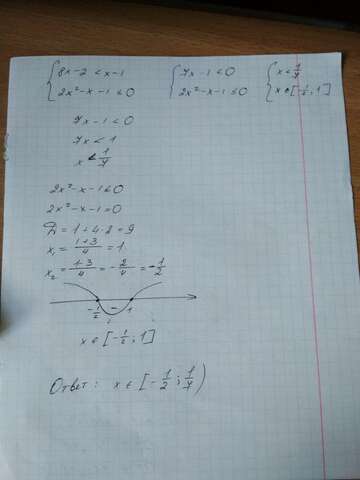 { 8x-2 < x-1 { 7x-1<0 { x<1/7
{ 2x²-x-1≤0 { 2x²-x-1≤0 { x∈[-1/2; 1]
7x-1<0
7x<1
x<1/7
2x²-x-1≤0
2x²-x-1=0
D=1+4·2=9
x₁=(1+3)/4=1.
x₂=(1-3)/4=-2/4=-1/2
-1/2 - 1
x∈[-1/2; 1]
Ответ: x∈[-1/2; 1/7)